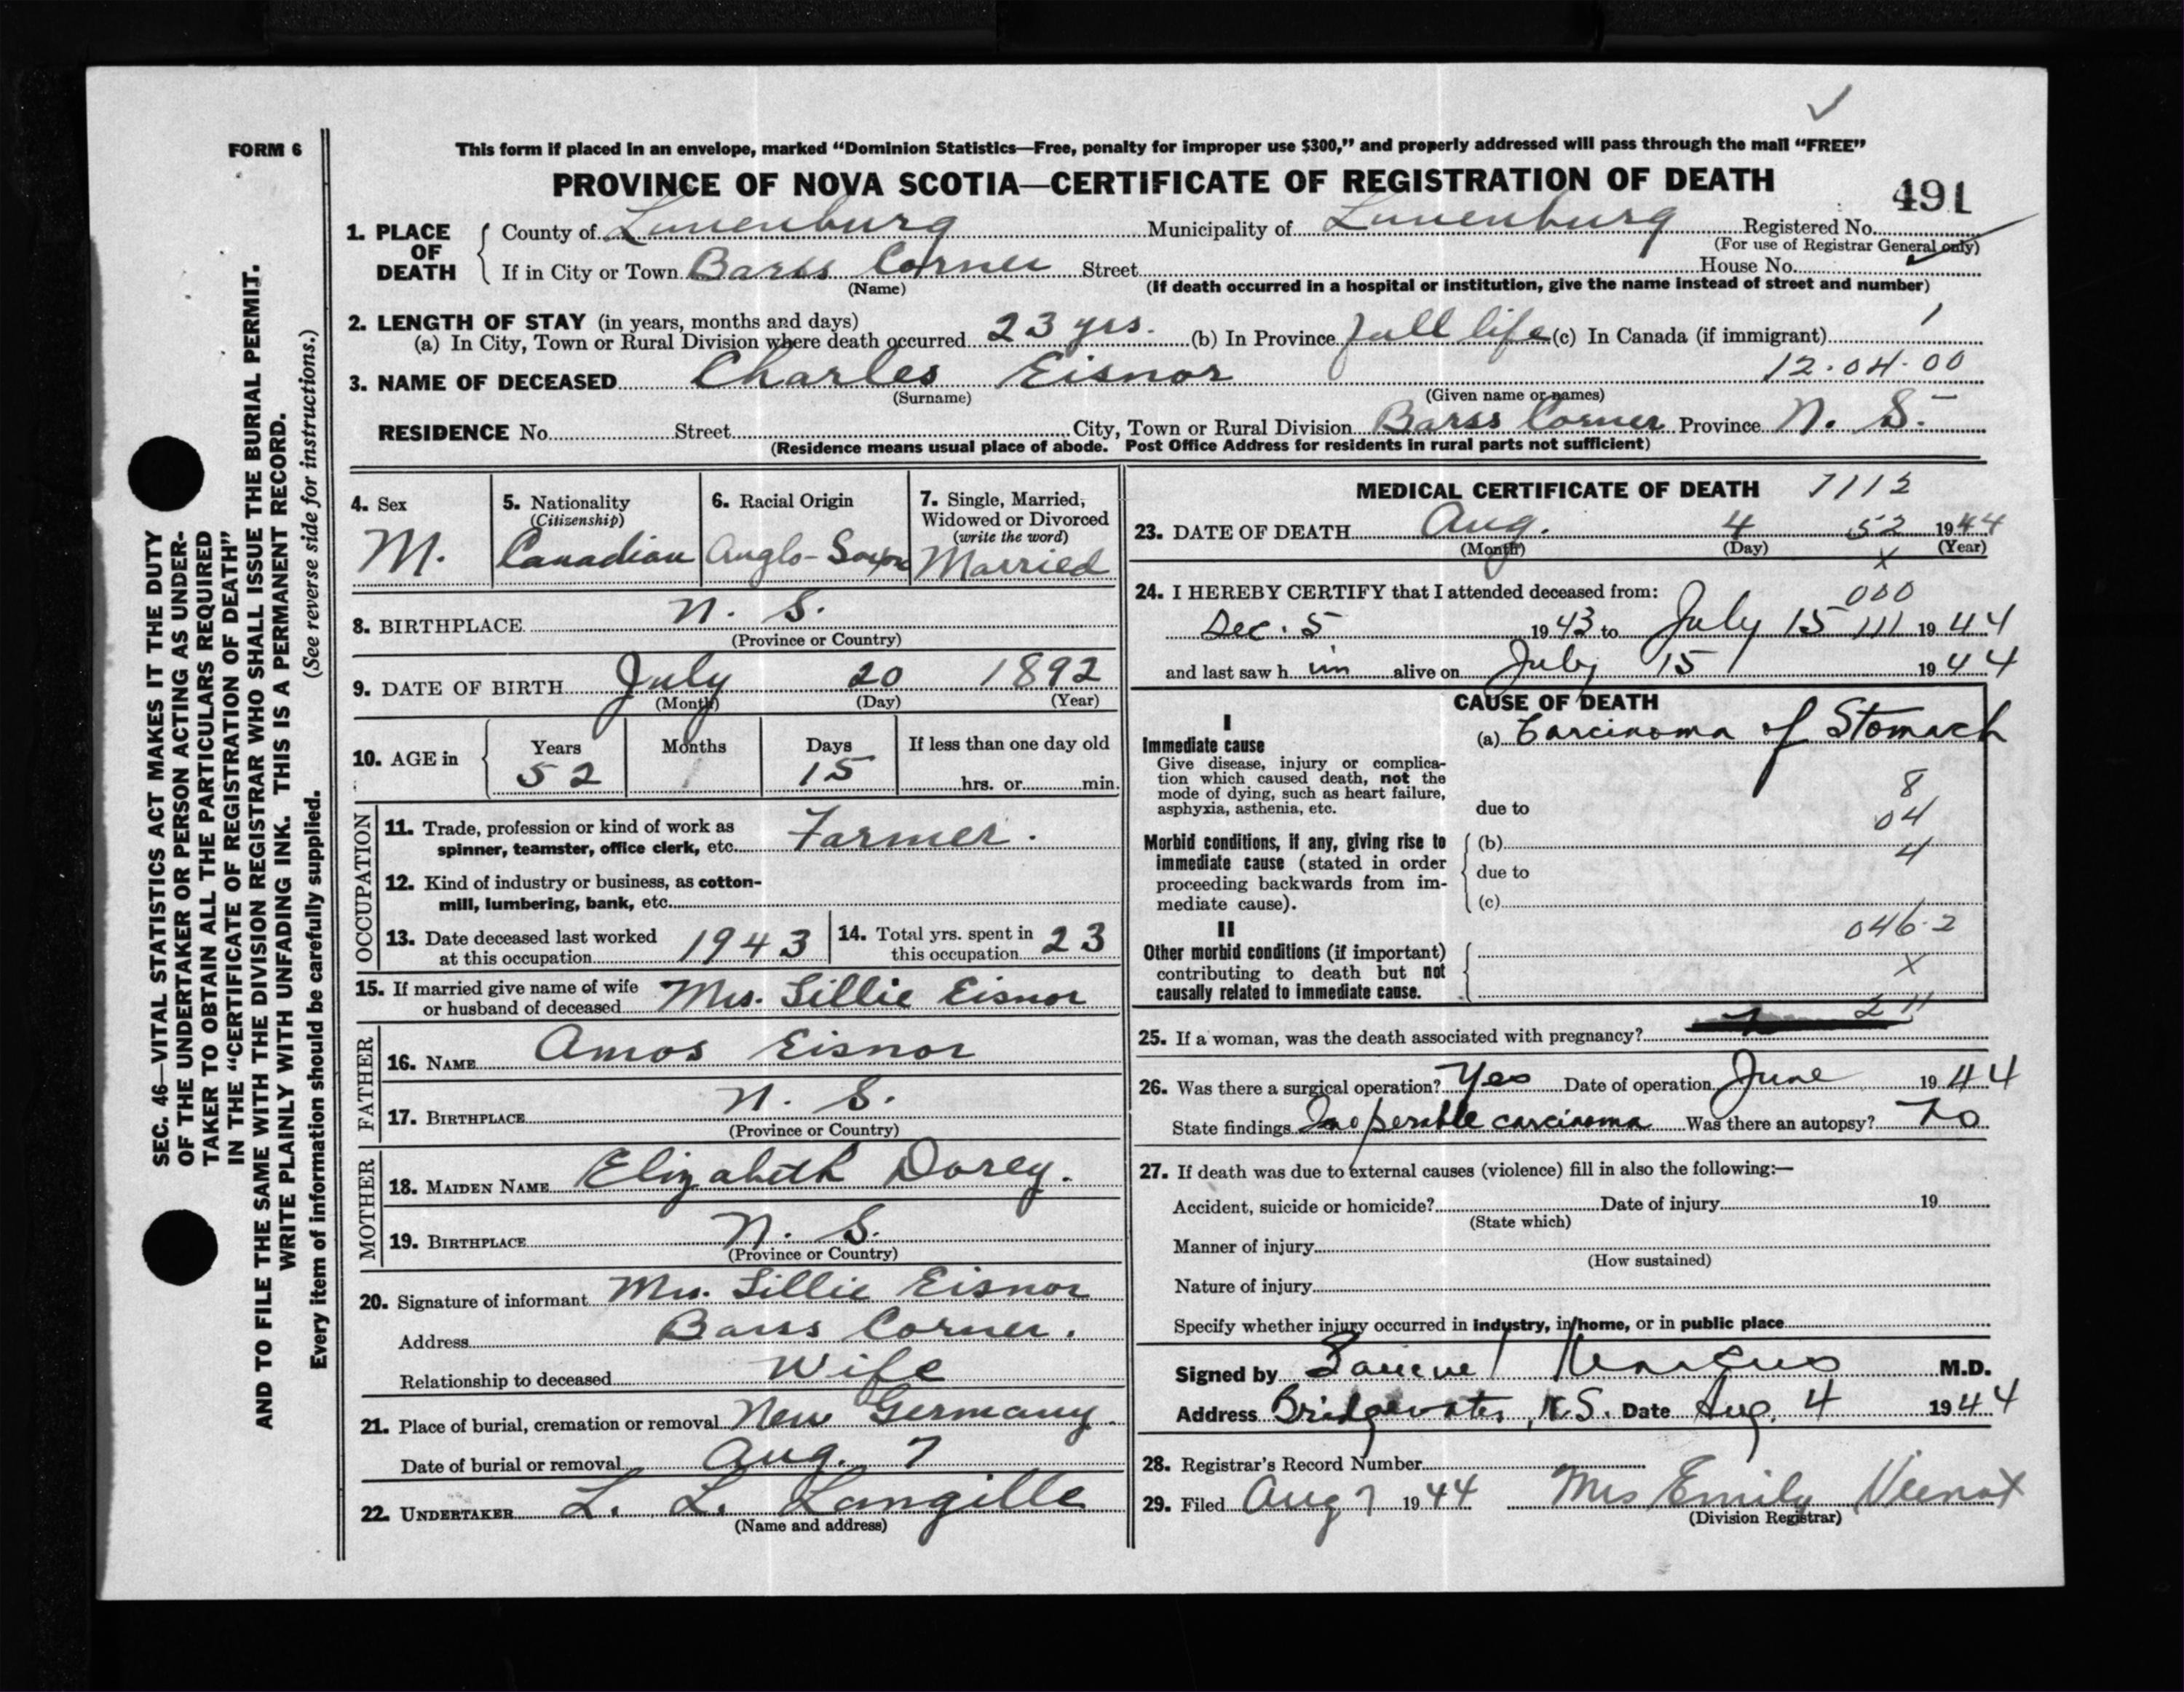 ✓
FORM 6
This form if placed in an envelope, marked "Dominion Statistics—Free, penalty for improper use $300," and properly addressed will pass through the mail "FREE"
PROVINCE OF NOVA SCOTIA—CERTIFICATE OF REGISTRATION OF DEATH
491
1. PLACE OF DEATH County of Lunenburg Municipality of Lunenburg Registered No.
(For use of Registrar General only)
If in City or Town Barss Corner Street House No.
(Name) (If death occurred in a hospital or institution, give the name instead of street and number)
2. LENGTH OF STAY (in years, months and days)
(a) In City, Town or Rural Division where death occurred 23 yrs. (b) In Province full life (c) In Canada (if immigrant)
12.04.00
3. NAME OF DECEASED Charles Eisnor
(Surname) (Given name or names)
RESIDENCE No. Street City, Town or Rural Division Barss Corner Province N. S.
(Residence means usual place of abode. Post Office Address for residents in rural parts not sufficient)
4. Sex M.
5. Nationality (Citizenship) Canadian
6. Racial Origin Anglo-Saxon
7. Single, Married, Widowed or Divorced (write the word) Married
8. BIRTHPLACE N. S.
(Province or Country)
9. DATE OF BIRTH July 20 1892
(Month) (Day) (Year)
10. AGE in Years 52 Months 1 Days 15 If less than one day old hrs. or min.
OCCUPATION
11. Trade, profession or kind of work as
spinner, teamster, office clerk, etc. Farmer.
12. Kind of industry or business, as cotton-
mill, lumbering, bank, etc.
13. Date deceased last worked
at this occupation 1943
14. Total yrs. spent in
this occupation 23
15. If married give name of wife
or husband of deceased Mrs. Lillie Eisnor
FATHER
16. NAME Amos Eisnor
17. BIRTHPLACE N. S.
(Province or Country)
MOTHER
18. MAIDEN NAME Elizabeth Dorey.
19. BIRTHPLACE N. S.
(Province or Country)
20. Signature of informant Mrs. Lillie Eisnor
Address Barss Corner.
Relationship to deceased Wife
21. Place of burial, cremation or removal New Germany.
Date of burial or removal Aug. 7
22. UNDERTAKER L. L. Langille
(Name and address)
MEDICAL CERTIFICATE OF DEATH 7112
23. DATE OF DEATH Aug. 4 52 1944
(Month) (Day) (Year)
x
24. I HEREBY CERTIFY that I attended deceased from: 000
Dec. 5 1943 to July 15 111 1944
and last saw him alive on July 15 1944
CAUSE OF DEATH
I
Immediate cause
Give disease, injury or complica-
tion which caused death, not the
mode of dying, such as heart failure,
asphyxia, asthenia, etc.
(a) Carcinoma of Stomach
8
due to 04
Morbid conditions, if any, giving rise to
immediate cause (stated in order
proceeding backwards from im-
mediate cause).
(b) 4
due to
(c)
II 046.2
Other morbid conditions (if important)
contributing to death but not
causally related to immediate cause.
x
211
25. If a woman, was the death associated with pregnancy?
26. Was there a surgical operation? Yes Date of operation June 1944
State findings Inoperable carcinoma Was there an autopsy? No
27. If death was due to external causes (violence) fill in also the following:—
Accident, suicide or homicide? Date of injury 19
(State which)
Manner of injury
(How sustained)
Nature of injury
Specify whether injury occurred in industry, in home, or in public place
Signed by Samuel Marcus M.D.
Address Bridgewater, N.S. Date Aug. 4 1944
28. Registrar's Record Number
29. Filed Aug 7 1944 Mrs Emily Veinot
(Division Registrar)
SEC. 46—VITAL STATISTICS ACT MAKES IT THE DUTY
OF THE UNDERTAKER OR PERSON ACTING AS UNDER-
TAKER TO OBTAIN ALL THE PARTICULARS REQUIRED
IN THE "CERTIFICATE OF REGISTRATION OF DEATH"
AND TO FILE THE SAME WITH THE DIVISION REGISTRAR WHO SHALL ISSUE THE BURIAL PERMIT.
WRITE PLAINLY WITH UNFADING INK. THIS IS A PERMANENT RECORD.
Every item of information should be carefully supplied. (See reverse side for instructions.)